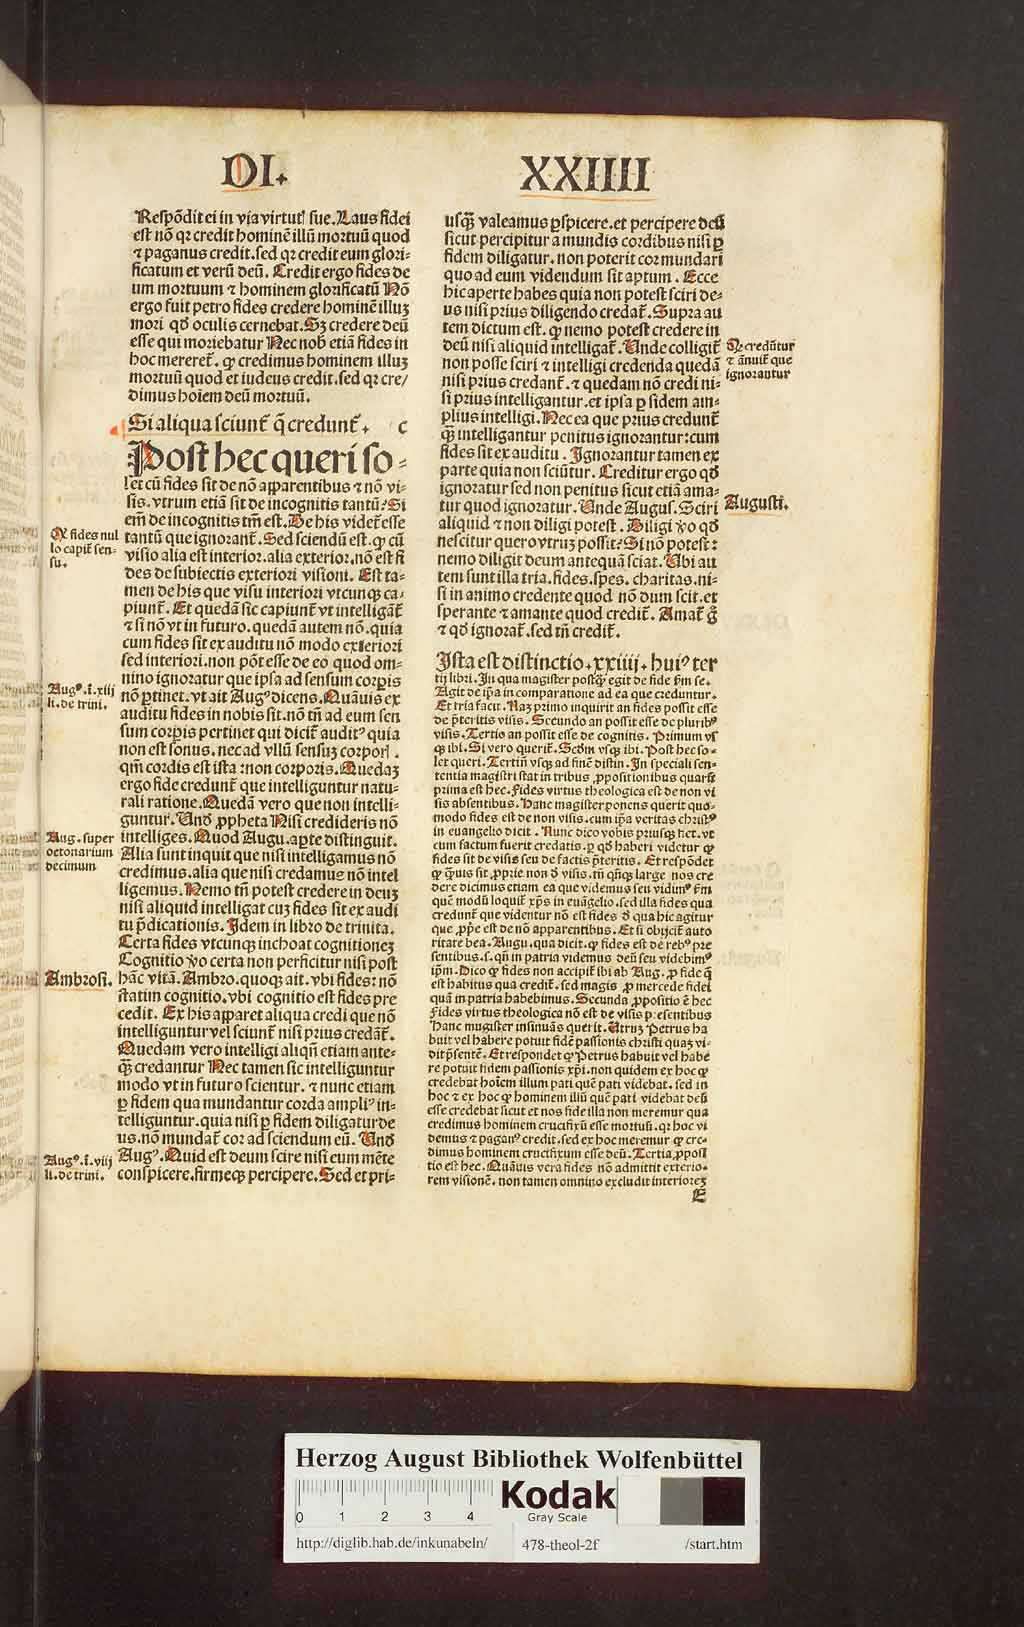 DI.
XXIIII
Respōdit ei in via virtutꝭ sue. Laus fidei
est nō qꝛ credit hominē illū mortuū quod
⁊ paganus credit. sed qꝛ credit eum glori-
ficatum et verū deū. Credit ergo fides de
um mortuum ⁊ hominem glorificatū Nō
ergo fuit petro fides credere hominē illuꝫ
mori qđ oculis cernebat. Sꝫ credere deū
esse qui moriebatur Nec nob̄ etiā fides in
hoc mereret̄. ꝙ credimus hominem illuꝫ
mortuū quod et iudeus credit. sed qꝛ cre/
dimus hoīem deū mortuū.
Si aliqua sciunt̄ q̄ credunt̄. c
Post hec queri so-
let cū fides sit de nō apparentibus ⁊ nō vi-
sis. vtrum etiā sit de incognitis tantū? Si
em̄ de incognitis tm̄ est. De his videt̄ esse
tantū que ignorant̄. Sed sciendū est. ꝙ cū
visio alia est interior. alia exterior. nō est fi
des de subiectis exteriori visioni. Est ta-
men de his que visu interiori vtcunqꝫ ca-
piunt̄. Et quedā sic capiunt̄ vt intelligāt̄
⁊ si nō vt in futuro. quedā autem nō. quia
cum fides sit ex auditu nō modo exteriori
sed interiori. non pōt esse de eo quod om-
nino ignoratur que ipsa ad sensum corꝑis
nō ꝑtinet. vt ait Augꝰ dicens. Quāuis ex
auditu fides in nobis sit. nō tn̄ ad eum sen
sum corꝑis pertinet qui dicit̄ auditꝰ quia
non est sonus. nec ad vllū sensuꝫ corporꝭ.
qm̄ cordis est ista: non corporis. Quedaꝫ
ergo fide credunt̄ que intelliguntur natu-
rali ratione. Quedā vero que non intelli-
guntur. Unđ ꝓpheta Nisi credideris nō
intelliges. Quod Augu. aꝑte distinguit.
Alia sunt inquit que nisi intelligamus nō
credimus. alia que nisi credamus nō intel
ligemus. Nemo tn̄ potest credere in deuꝫ
nisi aliquid intelligat cuꝫ fides sit ex audi
tu p̄dicationis. Idem in libro de trinita.
Certa fides vtcunqꝫ inchoat cognitioneꝫ
Cognitio ꝟo certa non perficitur nisi post
hāc vitā. Ambro. quoqꝫ ait. vbi fides: nō
statim cognitio. vbi cognitio est fides pre
cedit. Ex his apparet aliqua credi que nō
intelliguntur vel sciunt̄ nisi prius credāt̄.
Quedam vero intelligi aliqn̄ etiam ante-
qꝫ̄ credantur Nec tamen sic intelliguntur
modo vt in futuro scientur. ⁊ nunc etiam
ꝑ fidem qua mundantur corda ampliꝰ in-
telliguntur. quia nisi ꝑ fidem diligatur de
us. nō mundat̄ cor ad sciendum eū. Unđ
Augꝰ. Quid est deum scire nisi eum mēte
conspicere. firmeqꝫ percipere. Sed et pri-
Ꝙ fides nul
lo capit̄ sen-
su.
Augꝰ. ī. xiij
li. de trini.
Aug. super
octonarium
decimum
Ambrosi.
Augꝰ. ī. viij
li. de trini.
usqꝫ̄ valeamus ꝑspicere. et percipere deū
sicut percipitur a mundis cordibus nisi ꝑ
fidem diligatur. non poterit cor mundari
quo ad eum videndum sit aptum. Ecce
hic aperte habes quia non potest sciri de-
us nisi prius diligendo credat̄. Supra au
tem dictum est. ꝙ nemo potest credere in
deū nisi aliquid intelligat̄. Unde colligit̄
non posse sciri ⁊ intelligi credenda quedā
nisi prius credant̄. ⁊ quedam nō credi ni-
si prius intelligantur. et ipsa ꝑ fidem am-
plius intelligi. Nec ea que prius credunt̄
qꝫ̄ intelligantur penitus ignorantur: cum
fides sit ex auditu. Ignorantur tamen ex
parte quia non sciūtur. Creditur ergo qđ
ignoratur sed non penitus sicut etiā ama-
tur quod ignoratur. Unde Augus. Sciri
aliquid ⁊ non diligi potest. Diligi ꝟo qđ
nescitur quero vtruꝫ possit? Si nō potest:
nemo diligit deum antequā sciat. Ubi au
tem sunt illa tria. fides. spes. charitas. ni-
si in animo credente quod nō dum scit. et
sperante ⁊ amante quod credit̄. Amat̄ g̊
⁊ qđ ignorat̄. sed tn̄ credit̄.
Ista est distinctio. xxiiij. huiꝰ ter
tij libri. In qua magister postqꝫ̄ egit de fide ẜm se.
Agit de ip̄a in comparatione ad ea que creduntur.
Et tria facit. Naꝫ primo inquirit an fides possit esse
de p̄teritis visis. Secundo an possit esse de pluribꝰ
visis. Tertio an possit esse de cognitis. Primum vsqꝫ
ibi. Si vero querit̄. Scđm vsqꝫ ibi. Post hec so-
let queri. Tertiū vsqꝫ ad finē distin. In speciali sen-
tentia magistri stat in tribus ꝓpositionibus quarꝝ
prima est hec. Fides virtus theologica est de non vi
sis absentibus. Hanc magister ponens querit quo-
modo fides est de non visis. cum ip̄a veritas christꝰ
in euangelio dicit. Nunc dico vobis priusqꝫ fiet. vt
cum factum fuerit credatis. ꝑ qđ haberi videtur ꝙ
fides sit de visis seu de factis p̄teritis. Et respōdet
ꝙ q̄uis sit ꝓprie non đ visis. tn̄ qn̄qꝫ large nos cre
dere dicimus etiam ea que videmus seu vidimꝰ ẜm
quē modū loquit̄ xp̄s in euāgelio. sed illa fides qua
credunt̄ que videntur nō est fides đ qua hic agitur
que ꝓp̄e est de nō apparentibus. Et si obijcit̄ auto
ritate bea. Augu. qua dicit. ꝙ fides est đ rebꝰ pre
sentibus. s. qn̄ in patria videmus deū seu videbimꝰ
ip̄m. Dico ꝙ fides non accipit̄ ibi ab Aug. ꝓ fide q̄
est habitus qua credit̄. sed magis ꝓ mercede fidei
quā in patria habebimus. Secunda ꝓpositio ē hec
Fides virtus theologica nō est de visis presentibus
Hanc magister insinuās querit. Utruꝫ Petrus ha
buit vel habere potuit fidē passionis christi quaꝫ vi-
dit p̄sentē. Et respondet ꝙ Petrus habuit vel habe
re potuit fidem passionis xp̄i. non quidem ex hoc ꝙ
credebat hoīem illum pati quē pati videbat. sed in
hoc ⁊ ex hoc ꝙ hominem illū quē pati videbat deū
esse credebat sicut et nos fide illa non meremur qua
credimus hominem crucifixū esse mortuū. qꝛ hoc vi
demus ⁊ paganꝰ credit. sed ex hoc meremur ꝙ cre-
dimus hominem crucifixum esse deū. Tertia ꝓposi
tio est hec. Quāuis vera fides nō admittit exterio-
rem visionē. non tamen omnino excludit interioreꝫ
E
Ꝙ credūtur
⁊ āuit̄ que
ignorantur
Augusti.
Herzog August Bibliothek Wolfenbüttel
0 1 2 3 4
Kodak
Gray Scale
http://diglib.hab.de/inkunabeln/ 478-theol-2f /start.htm